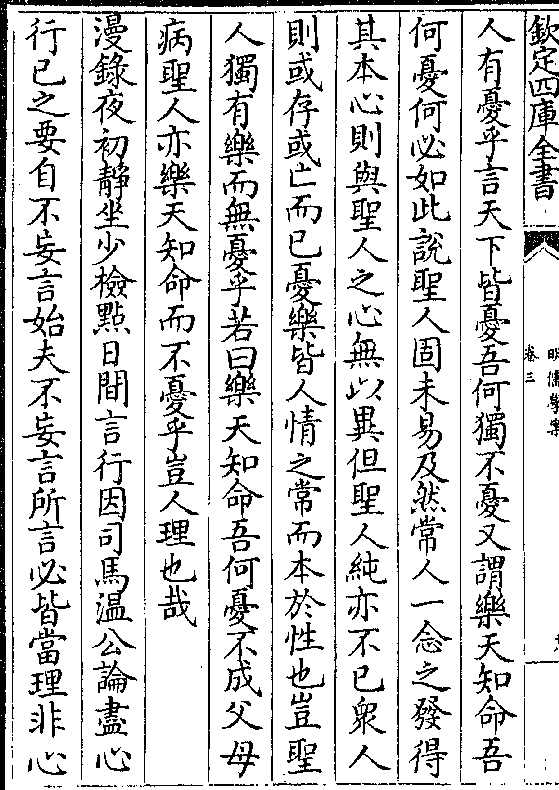 欽定四庫全書
明儒學案
卷三
人有憂乎言天下皆憂吾何獨不憂又謂樂天知命吾
何憂何必如此說聖人固未易及然常人一念之發得
其本心則與聖人之心無以異但聖人純亦不已衆人
則或存或亡而已憂樂皆人情之常而本於性也豈聖
人獨有樂而無憂乎若曰樂天知命吾何憂不成父母
病聖人亦樂天知命而不憂乎豈人理也哉
漫錄夜初靜坐少檢點日間言行因司馬溫公論盡心
行已之要自不妄言始夫不妄言所言必皆當理非心